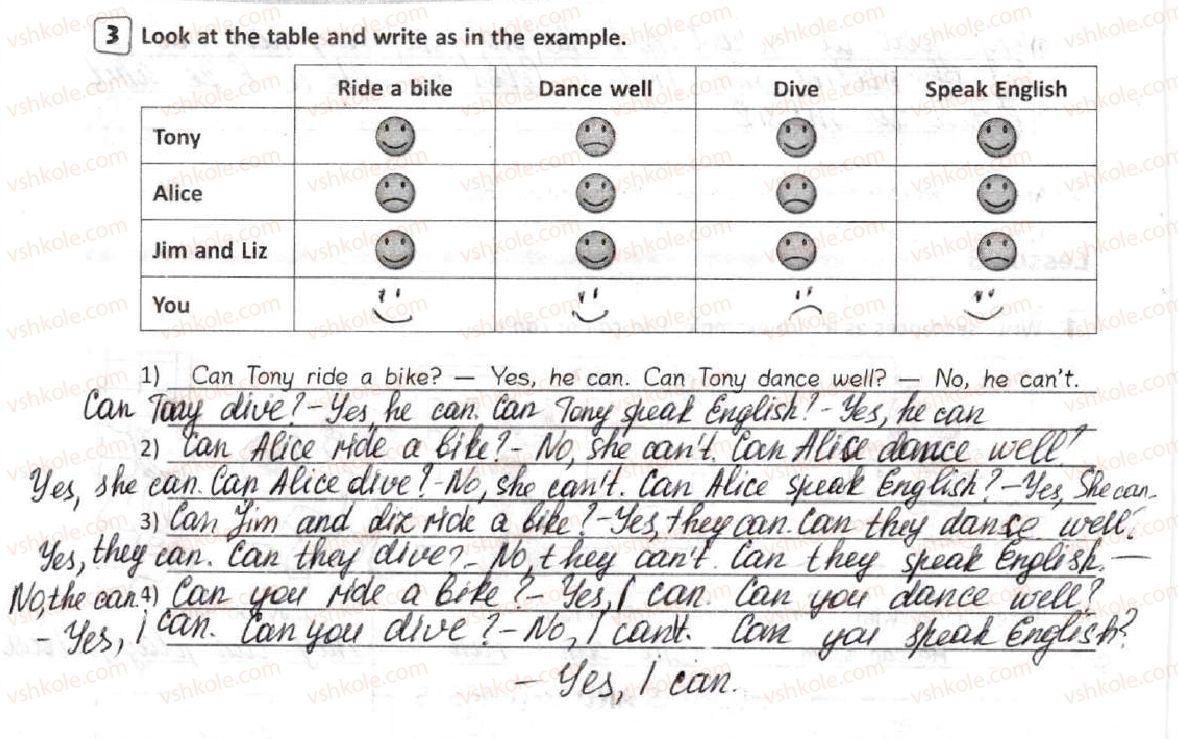 3 Look at the table and write as in the example.
Ride a bike Dance well Dive Speak English
Tony
Alice
Jim and Liz
You
1) Can Tony ride a bike? — Yes, he can. Can Tony dance well? — No, he can't.
Can Tony dive? - Yes, he can. Can Tony speak English? - Yes, he can
2) Can Alice ride a bike? - No, she can't. Can Alice dance well?
Yes, she can. Can Alice dive? - No, she can't. Can Alice speak English? - Yes, She can.
3) Can Jim and Liz ride a bike? - Yes, they can. Can they danse well?
Yes, they can. Can they dive? - No, they can't. Can they speak English. —
No, the can. 4) Can you ride a bike? - Yes, I can. Can you dance well?
- Yes, I can. Can you dive? - No, I cant. Can you speak English?
- Yes, I can.
vshkole.com